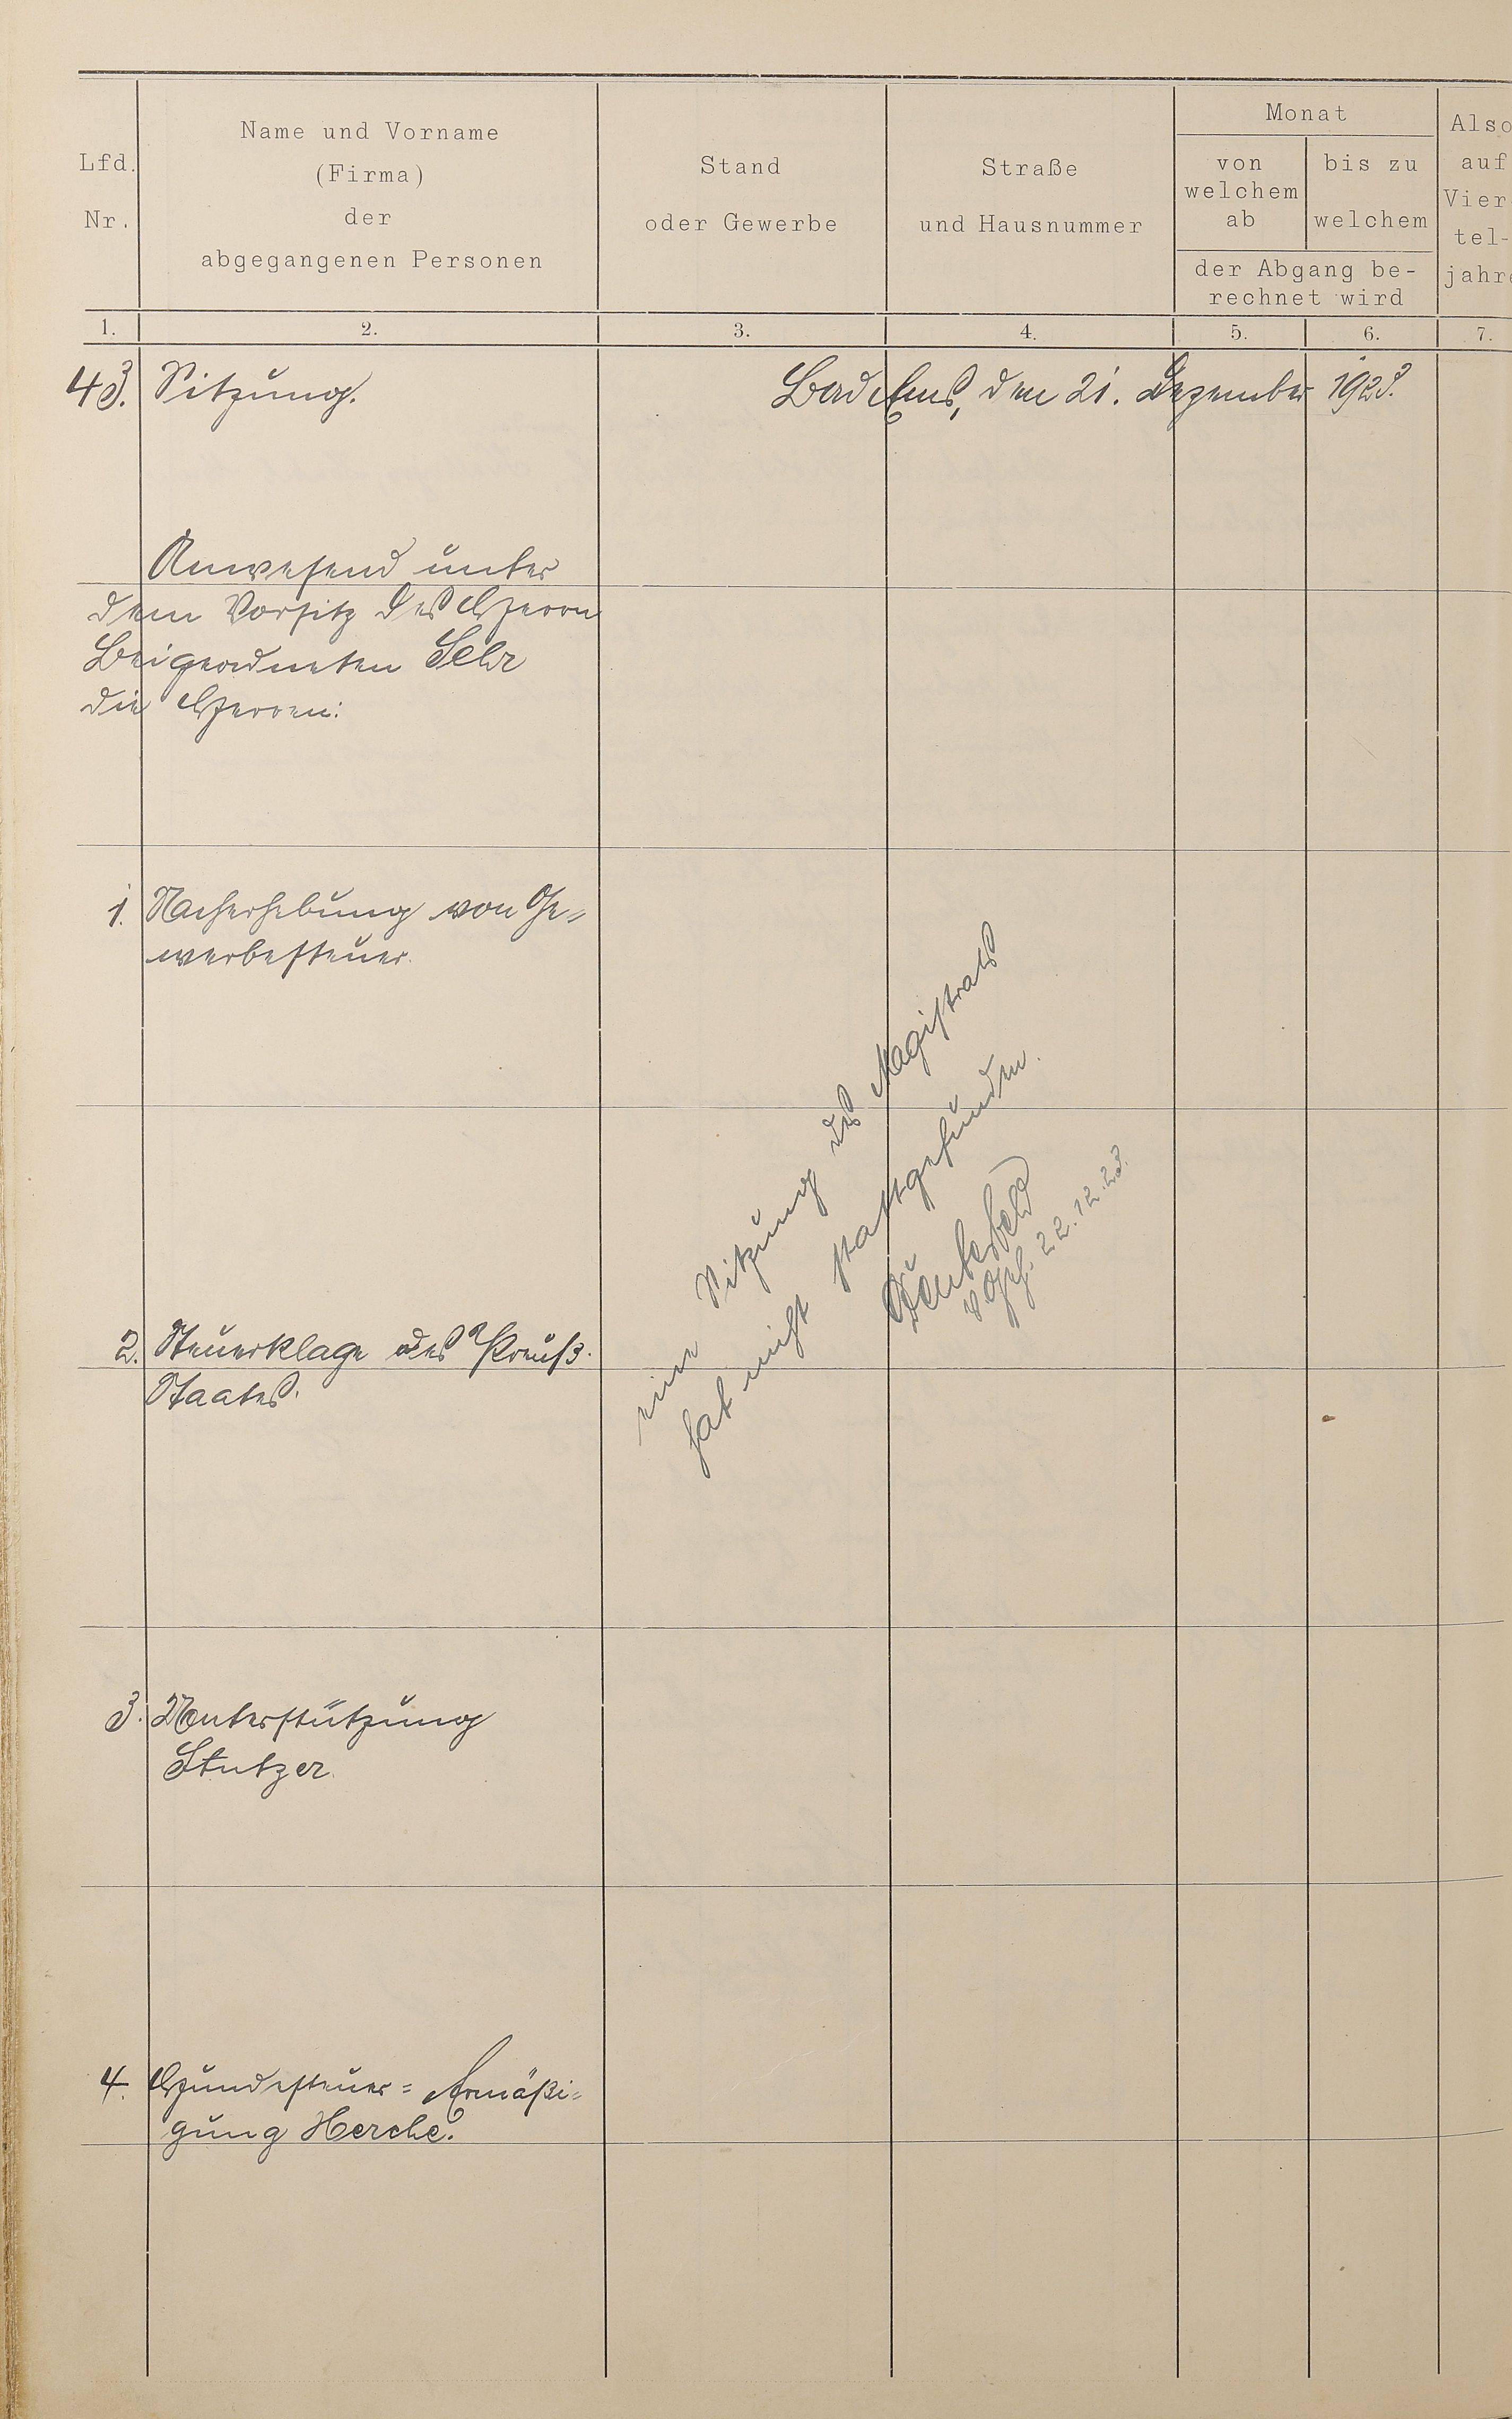 Lfd. Nr.
Name und Vorname
(Firma)
der
abgegangenen Personen
Stand
oder Gewerbe
Straße
und Hausnummer
Monat
von
welchem
ab
bis zu
welchem
der Abgang be-
rechnet wird
Also
auf
Vier
tel-
jahre
1. 2. 3. 4. 5. 6. 7.
43. Sitzung. Bad Ems, den 21. Dezember 1923.
Anwesend unter
dem Vorsitz des Herrn
Beigeordneten Sehr
die Herren:
1. Nacherhebung von Ge=
werbesteuer.
2. Steuerklage des Preuß.
Staates.
3. Unterstützung
Stutzer
4. Hundesteuer=Ermäßi=
gung Herche.
eine Sitzung des Magistrats
hat nicht stattgefunden.
22.12.23.